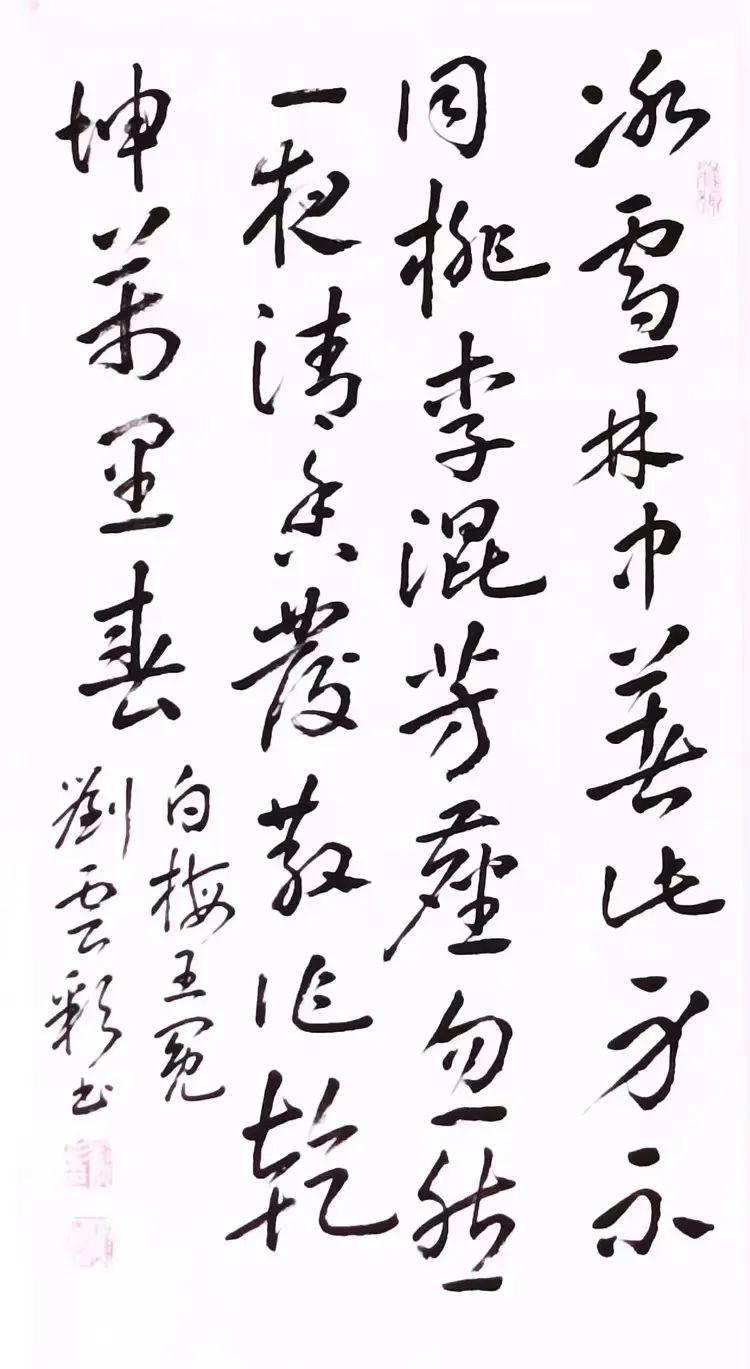 冰雪林中著此身不
同桃李混芳塵忽然
一夜清香發散作乾
坤萬里春
白梅王冕
劉雲彩书